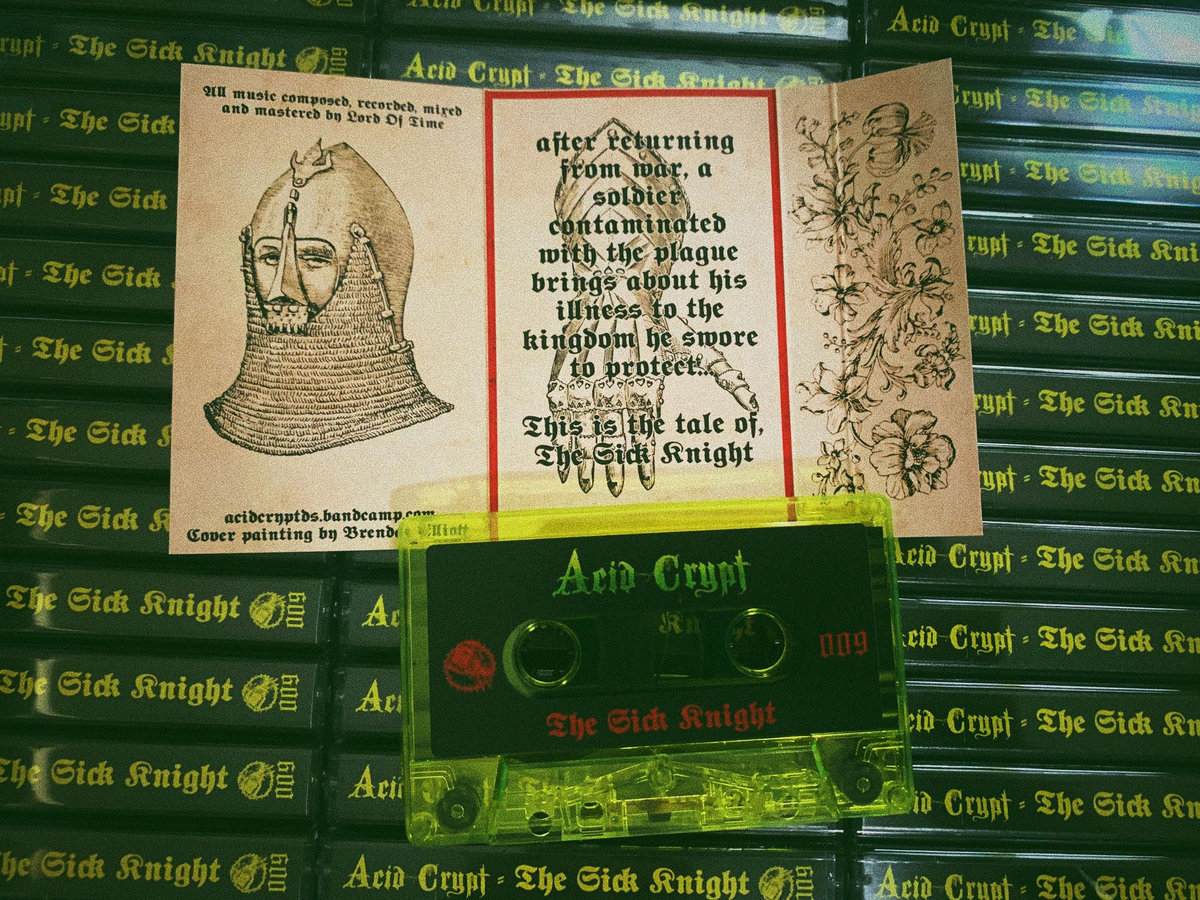 Acid Crypt - The Sick Knight 009
All music composed, recorded, mixed
and mastered by Lord Of Time
after returning
from war, a
soldier
contaminated
with the plague
brings about his
illness to the
kingdom he swore
to protect...
This is the tale of,
The Sick Knight
acidcryptds.bandcamp.com
Cover painting by Elliott
Acid Crypt
009
The Sick Knight
The Sick Knight 009
The Sick Knight 009
The Sick Knight 009
The Sick Knight 009
Acid Crypt - The Sick Knight 009